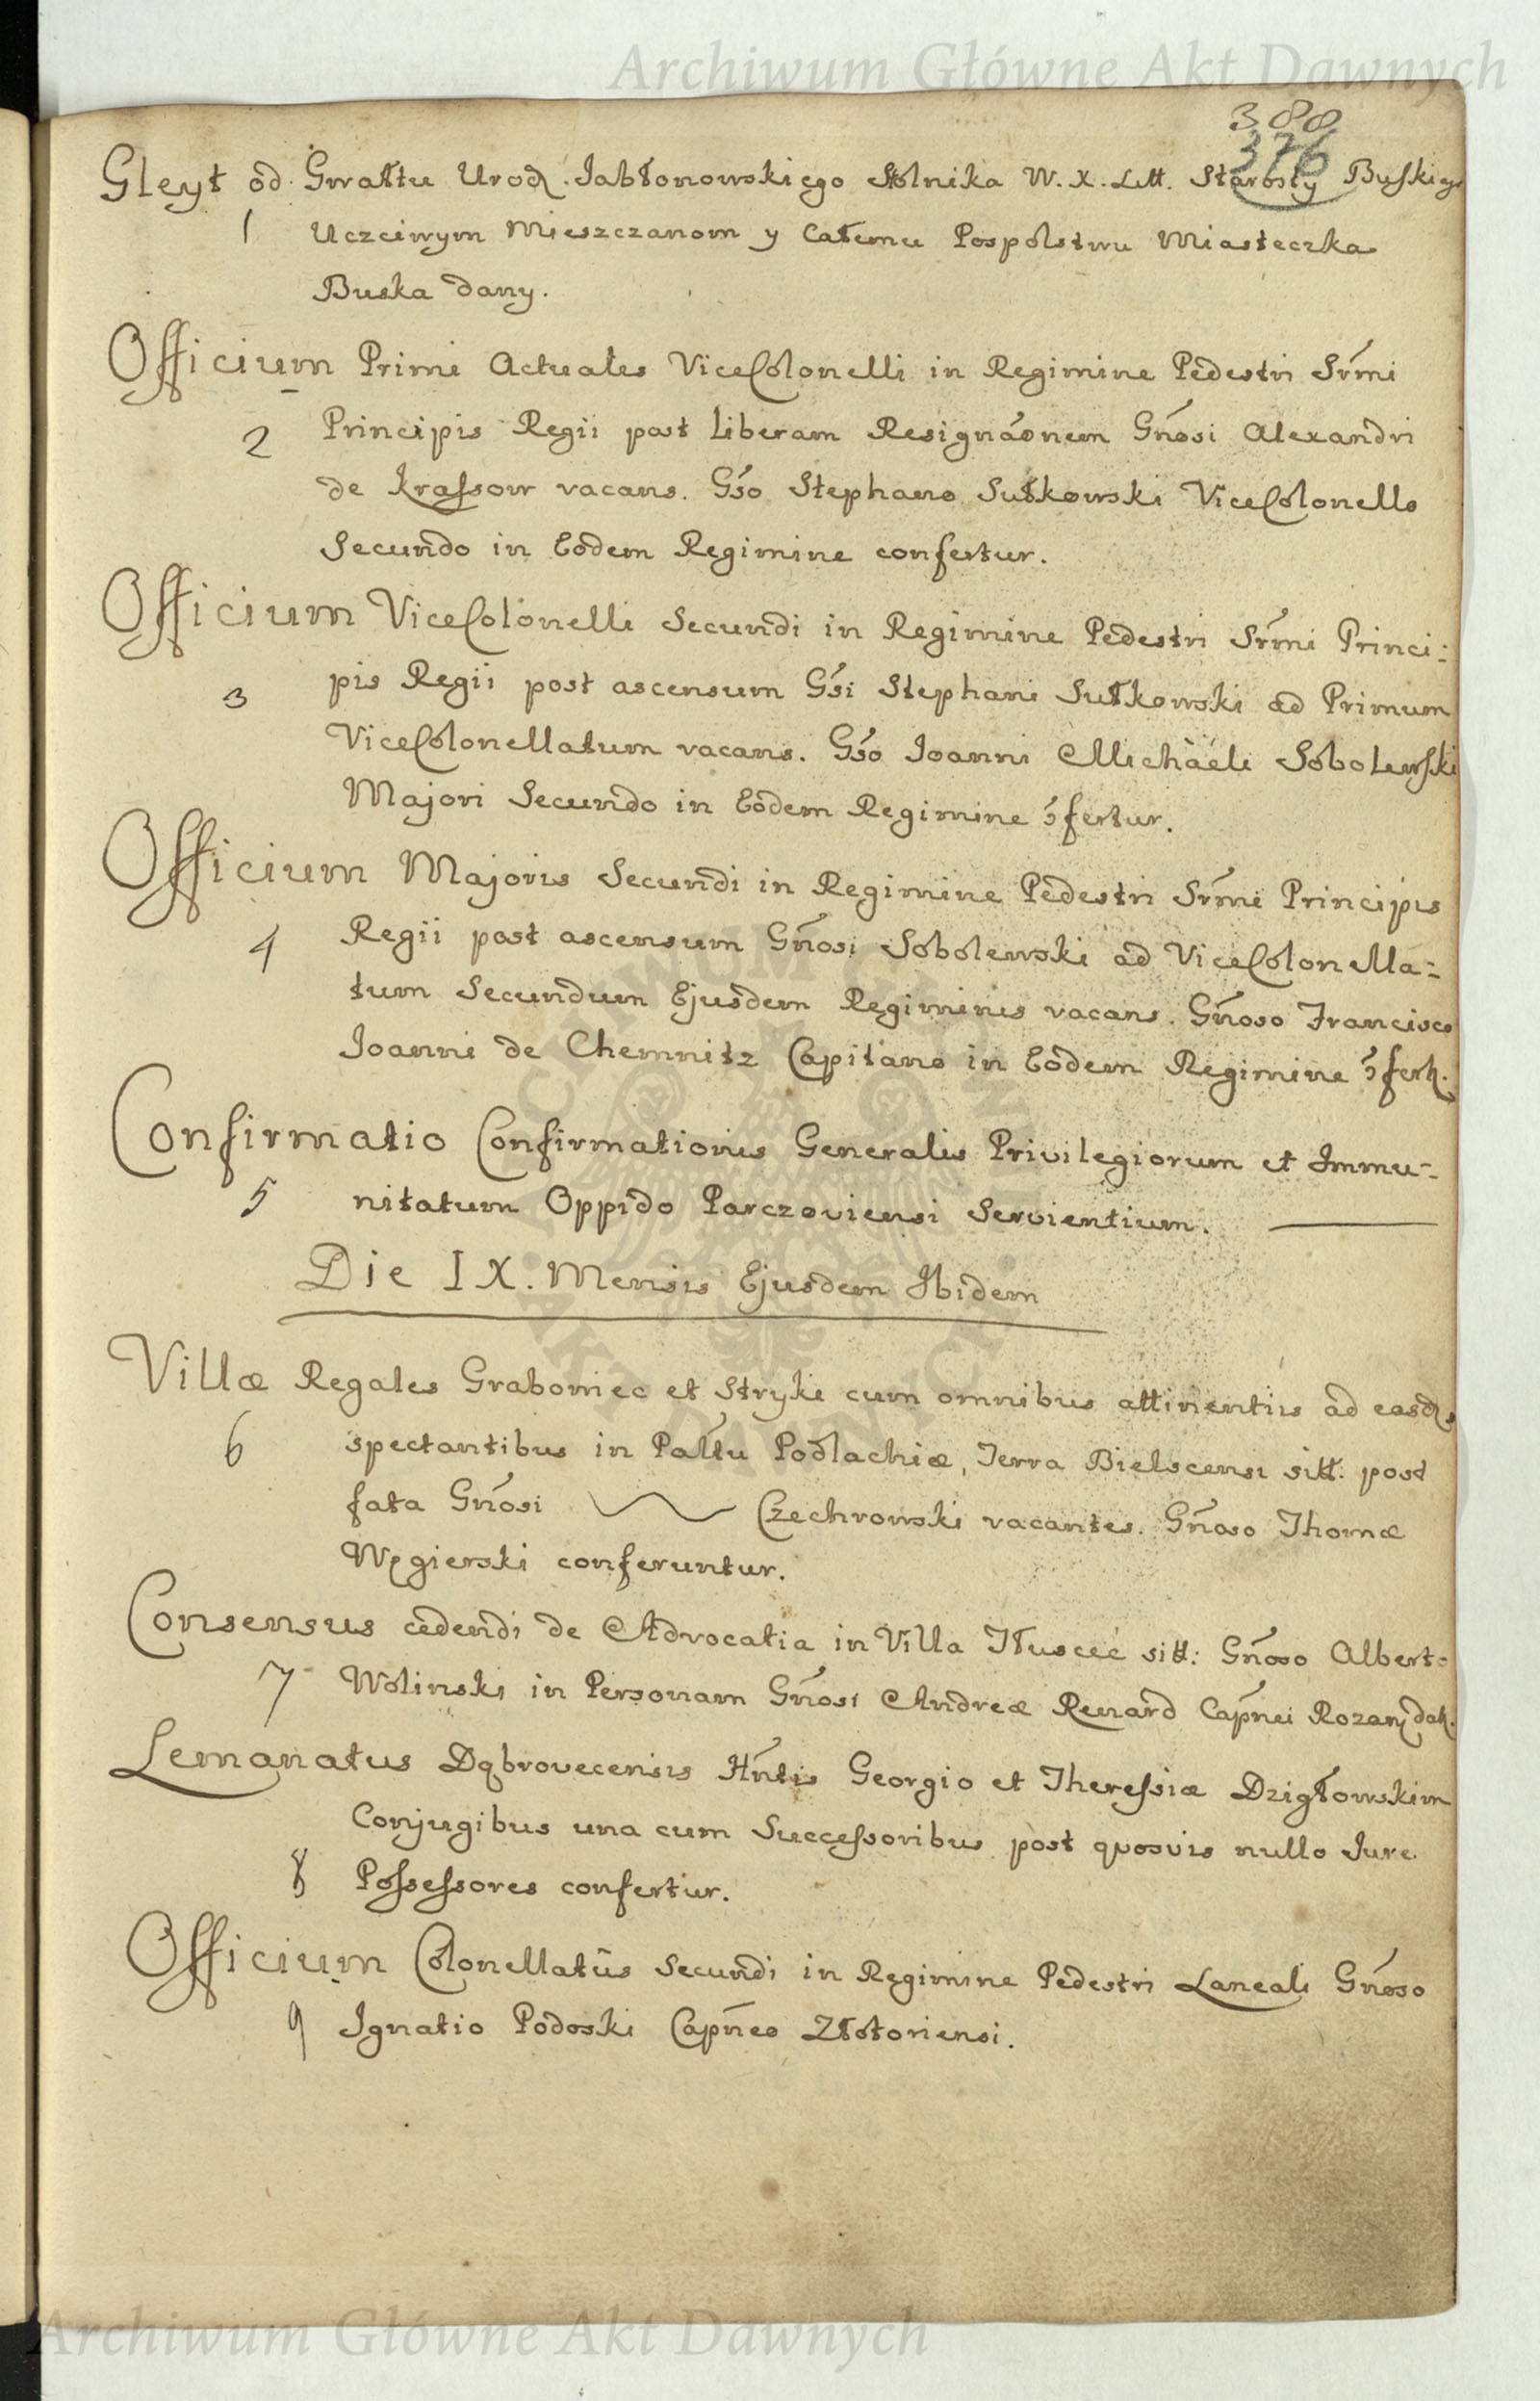 Archiwum Główne Akt Dawnych
388
376
Gleyt od Gwałtu Urodz. Jabłonowskiego Stolnika W. X. Litt. Starosty Buskieg
1 Uczciwym Mieszczanom y Całemu Pospolstwu Miasteczka
Buska dany.
Officium Primi Actuales ViceColonelli in Regimine Pedestri Srmi
2 Principis Regii post Liberam Resignaonem Gnosi Alexandri
de Krassow vacans. Gso Stephano Sułkowski ViceColonello
Secundo in Eodem Regimine confertur.
Officium ViceColonelli Secundi in Regimine Pedestri Srmi Princi:
3 pis Regii post ascensum Gsi Stephani Sułkowski ad Primum
ViceColonellatum vacans. Gso Joanni Michaeli Sobolewski
Majori Secundo in Eodem Regimine ɔfertur.
Officium Majoris Secundi in Regimine Pedestri Srmi Principis
4 Regii post ascensum Gnosi Sobolewski ad ViceColonella:
tum Secundum Ejusdem Regiminis vacans. Gnoso Francisco
Joanni de Chemnitz Capitano in Eodem Regimine ɔfert.
Confirmatio Confirmationis Generalis Privilegiorum et Immu-
5 nitatum Oppido Parczoviensi Servientium.
Die IX. Mensis Ejusdem Ibidem
Villæ Regales Graboniec et Stryki cum omnibus attinentiis ad easd
6 spectantibus in Pałtu Podlachiæ, Terra Bielscensi sitt: post
fata Gnosi Czechrowski vacantes. Gnoso Thomæ
Węgierski conferuntur.
Consensus cedendi de Advocatia in Villa Tłuscec sitt: Gnoso Alberto
7 Wolinski in Personam Gnosi Andreæ Renard Capnei Rozan dat.
Lemanatus Dąbrovecensis Hntis Georgio et Theressiæ Dzigłowskim
Conjugibus una cum Successoribus post quosvis nullo Jure
8 Possessores confertur.
Officium Colonellatûs Secundi in Regimine Pedestri Laneali Gnoso
9 Ignatio Podoski Capneo Złotoriensi.
Archiwum Główne Akt Dawnych